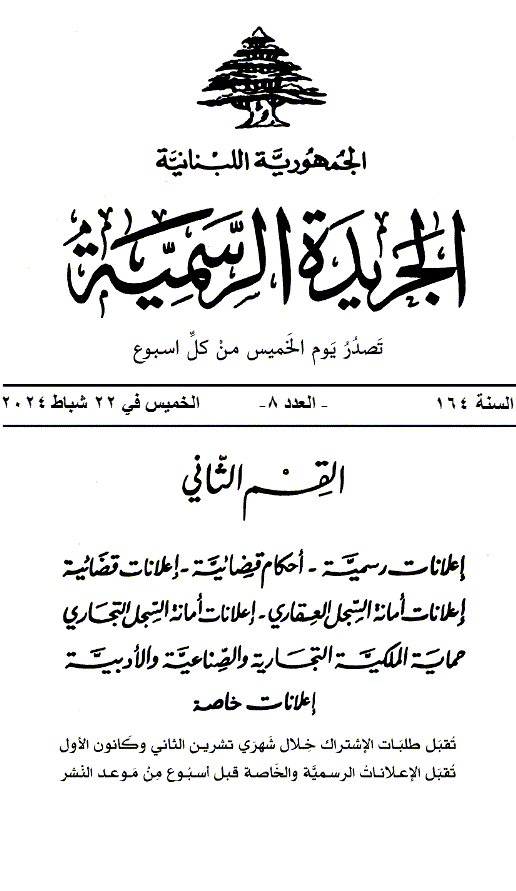 الجُمهُوريَّة اللبْنَانيَّة
الجَريدَة الرَّسْمِيَّة
تَصدُرُ يَوم الخَميس منْ كلِّ اسبوع
السنة ١٦٤ - العدد ٨- الخميس في ٢٢ شباط ٢٠٢٤
القِسْم الثّاني
إعلانات رسميَّة - أحكام قضائيَّة - إعلانات قضائية
إعلانات أمانة السِّجل العقاري - إعلانات أمانة السِّجل التجاري
حماية الملكيَّة التجارية والصِّناعيَّة والأدبيَّة
إعلانات خاصة
تُقبَل طلبَات الإشتراك خلال شَهرَي تشرين الثاني وكَانون الأول
تُقبَل الإعلاناتُ الرسميَّة والخَاصة قبل أسبُوع مِنْ مَوعد النّشر